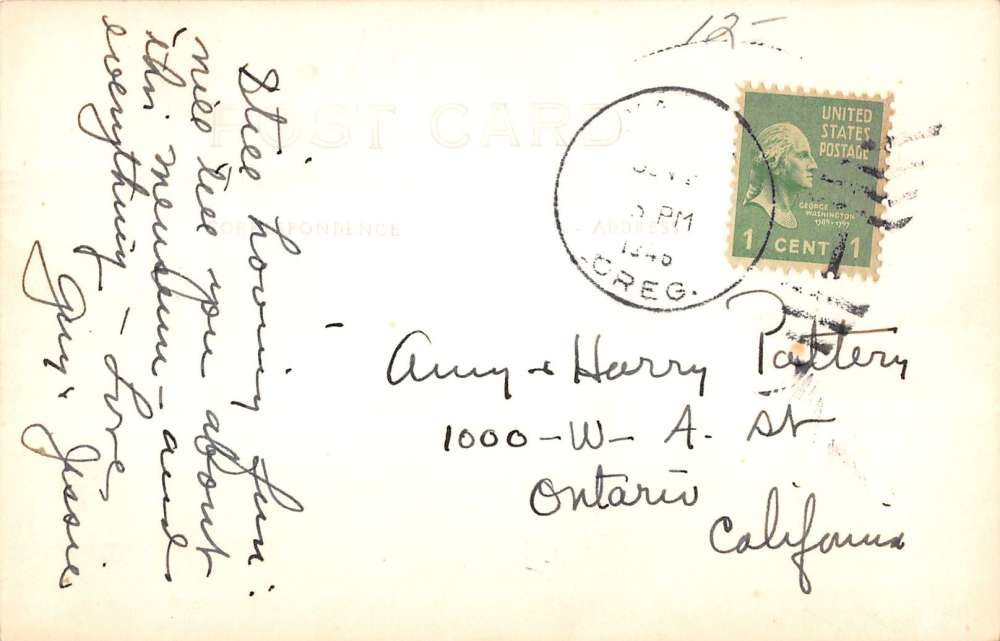 12-
POST CARD
CORRESPONDENCE
ADDRESS
Still having fun.
Will tell you about
this museum - and
everything - Love,
Guy & Jessie
5 PM
1946
OREG.
UNITED
STATES
POSTAGE
GEORGE
WASHINGTON
1789-1797
1 CENT 1
Amy & Harry Pattery
1000 - W - A. St
Ontario
California